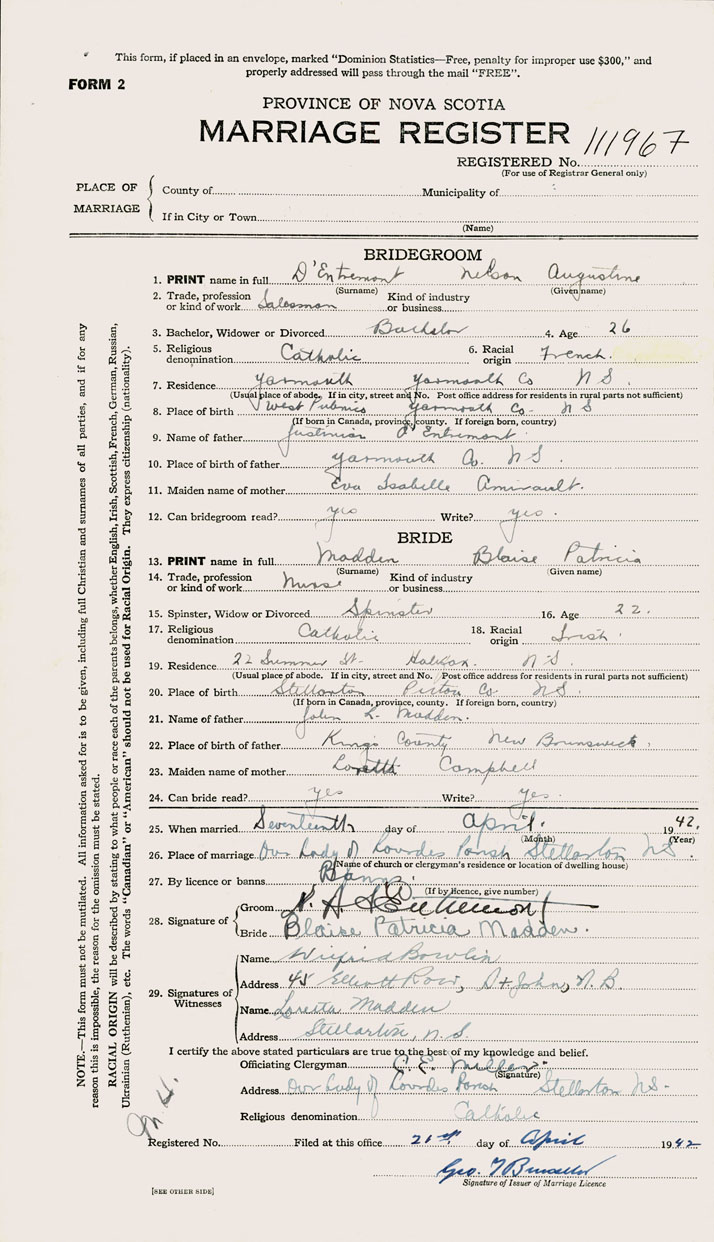 This form, if placed in an envelope, marked “Dominion Statistics—Free, penalty for improper use $300,” and
properly addressed will pass through the mail “FREE”.
FORM 2
PROVINCE OF NOVA SCOTIA
MARRIAGE REGISTER
REGISTERED No. 111967
(For use of Registrar General only)
PLACE OF MARRIAGE
County of Municipality of
If in City or Town
(Name)
BRIDEGROOM
1. PRINT name in full D'Entremont Nelson Augustine
(Surname) (Given name)
2. Trade, profession or kind of work Salesman Kind of industry or business
3. Bachelor, Widower or Divorced Bachelor 4. Age 26
5. Religious denomination Catholic 6. Racial origin French.
7. Residence Yarmouth Yarmouth Co N S.
(Usual place of abode. If in city, street and No. Post office address for residents in rural parts not sufficient)
8. Place of birth West Pubnico Yarmouth Co. N S
(If born in Canada, province, county. If foreign born, country)
9. Name of father Justinian D'Entremont
10. Place of birth of father Yarmouth Co. N S.
11. Maiden name of mother Eva Isabelle Amirault.
12. Can bridegroom read? yes Write? yes.
BRIDE
13. PRINT name in full Madden Blaise Patricia
(Surname) (Given name)
14. Trade, profession or kind of work Nurse Kind of industry or business
15. Spinster, Widow or Divorced Spinster 16. Age 22.
17. Religious denomination Catholic 18. Racial origin Irish.
19. Residence 22 Summer St. Halifax. N S.
(Usual place of abode. If in city, street and No. Post office address for residents in rural parts not sufficient)
20. Place of birth Stellarton Pictou Co N S.
(If born in Canada, province, county. If foreign born, country)
21. Name of father John L. Madden.
22. Place of birth of father Kings County New Brunswick.
23. Maiden name of mother Loretta Campbell
24. Can bride read? yes Write? yes.
25. When married Seventeenth day of April. 1942.
(Month) (Year)
26. Place of marriage Our Lady of Lourdes Parish Stellarton NS.
(Name of church or clergyman's residence or location of dwelling house)
27. By licence or banns Banns.
(If by licence, give number)
28. Signature of
Groom N. A. D'Entremont
Bride Blaise Patricia Madden.
29. Signatures of Witnesses
Name Wilfrid Bowlin
Address 45 Elliott Row, St John, N.B.
Name Loretta Madden
Address Stellarton, N.S.
I certify the above stated particulars are true to the best of my knowledge and belief.
Officiating Clergyman C. E.
(Signature)
Address Our Lady of Lourdes Parish Stellarton NS-
Religious denomination Catholic
Registered No. Filed at this office 21st day of April 1942
Geo. T
Signature of Issuer of Marriage Licence
[SEE OTHER SIDE]
NOTE.—This form must not be mutilated. All information asked for is to be given, including full Christian and surnames of all parties, and if for any
reason this is impossible, the reason for the omission must be stated.
RACIAL ORIGIN will be described by stating to what people or race each of the parents belongs, whether English, Irish, Scottish, French, German, Russian,
Ukrainian (Ruthenian), etc. The words “Canadian” or “American” should not be used for Racial Origin. They express citizenship (nationality).